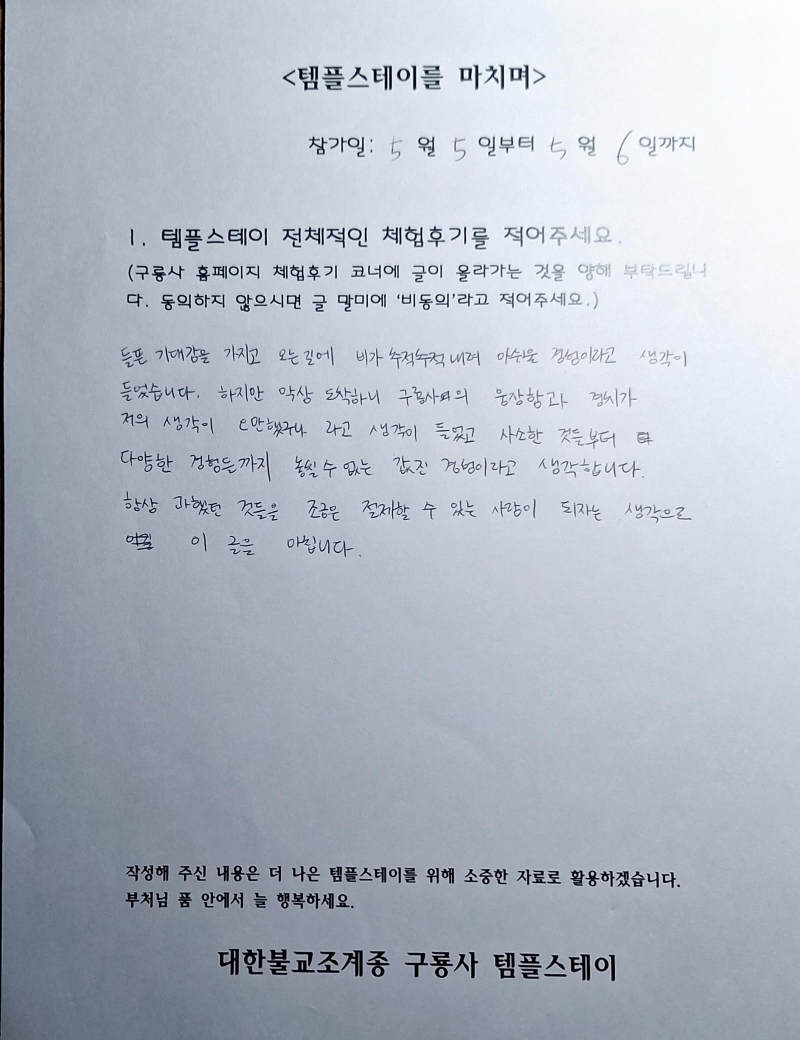 <템플스테이를 마치며>
참가일: 5 월 5 일부터 5 월 6 일까지
1. 템플스테이 전체적인 체험후기를 적어주세요.
(구룡사 홈페이지 체험후기 코너에 글이 올라가는 것을 양해 부탁드립니
다. 동의하지 않으시면 글 말미에 '비동의'라고 적어주세요.)
들뜬 기대감을 가지고 오는길에 비가 추적추적 내려 아쉬운 경험이라고 생각이
들었습니다. 하지만 막상 도착하니 구룡사의 웅장함과 경치가
저의 생각이 오만했구나 라고 생각이 들었고 사소한 것들부터
다양한 경험들까지 놓칠 수 없는 값진 경험이라고 생각합니다.
항상 과했던 것들을 조금은 절제할 수 있는 사람이 되자는 생각으로
이 글을 마칩니다.
작성해 주신 내용은 더 나은 템플스테이를 위해 소중한 자료로 활용하겠습니다.
부처님 품 안에서 늘 행복하세요.
대한불교조계종 구룡사 템플스테이